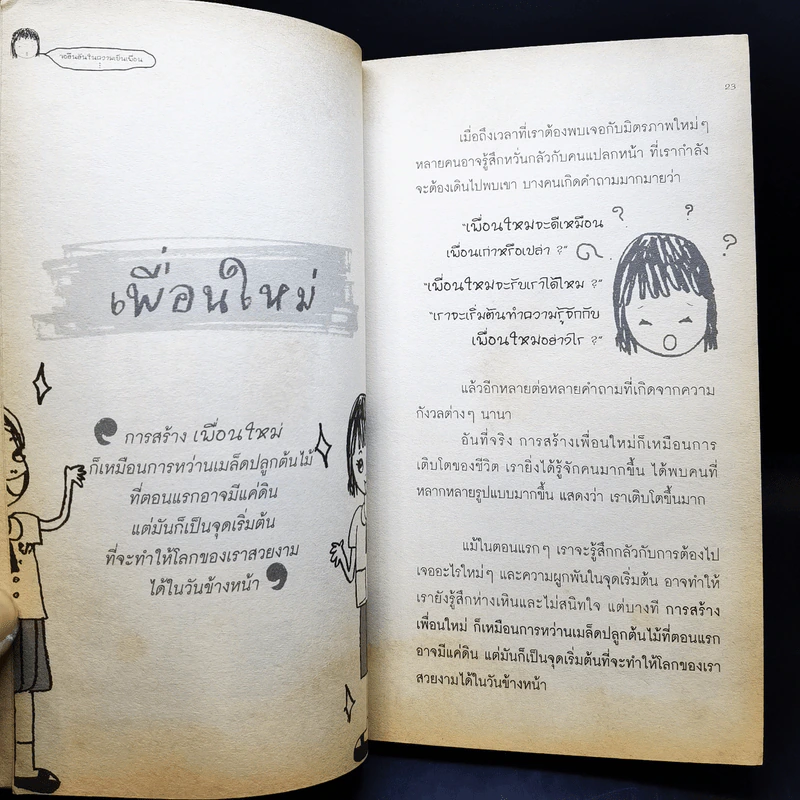 ขอยืนยันในความเป็นเพื่อน
เพื่อนใหม่
การสร้าง เพื่อนใหม่
ก็เหมือนการหว่านเมล็ดปลูกต้นไม้
ที่ตอนแรกอาจมีแค่ดิน
แต่มันก็เป็นจุดเริ่มต้น
ที่จะทำให้โลกของเราสวยงาม
ได้ในวันข้างหน้า
23
เมื่อถึงเวลาที่เราต้องพบเจอกับมิตรภาพใหม่ๆ
หลายคนอาจรู้สึกหวั่นกลัวกับคนแปลกหน้า ที่เรากำลัง
จะต้องเดินไปพบเขา บางคนเกิดคำถามมากมายว่า
"เพื่อนใหม่จะดีเหมือน
เพื่อนเก่าหรือเปล่า ?"
"เพื่อนใหม่จะรับเราได้ไหม ?"
"เราจะเริ่มต้นทำความรู้จักกับ
เพื่อนใหม่อย่างไร ?"
แล้วอีกหลายต่อหลายคำถามที่เกิดจากความ
กังวลต่างๆ นานา
อันที่จริง การสร้างเพื่อนใหม่ก็เหมือนการ
เติบโตของชีวิต เรายิ่งได้รู้จักคนมากขึ้น ได้พบคนที่
หลากหลายรูปแบบมากขึ้น แสดงว่า เราเติบโตขึ้นมาก
แม้ในตอนแรกๆ เราจะรู้สึกกลัวกับการต้องไป
เจออะไรใหม่ๆ และความผูกพันในจุดเริ่มต้น อาจทำให้
เรายังรู้สึกห่างเหินและไม่สนิทใจ แต่บางที การสร้าง
เพื่อนใหม่ ก็เหมือนการหว่านเมล็ดปลูกต้นไม้ที่ตอนแรก
อาจมีแค่ดิน แต่มันก็เป็นจุดเริ่มต้นที่จะทำให้โลกของเรา
สวยงามได้ในวันข้างหน้า